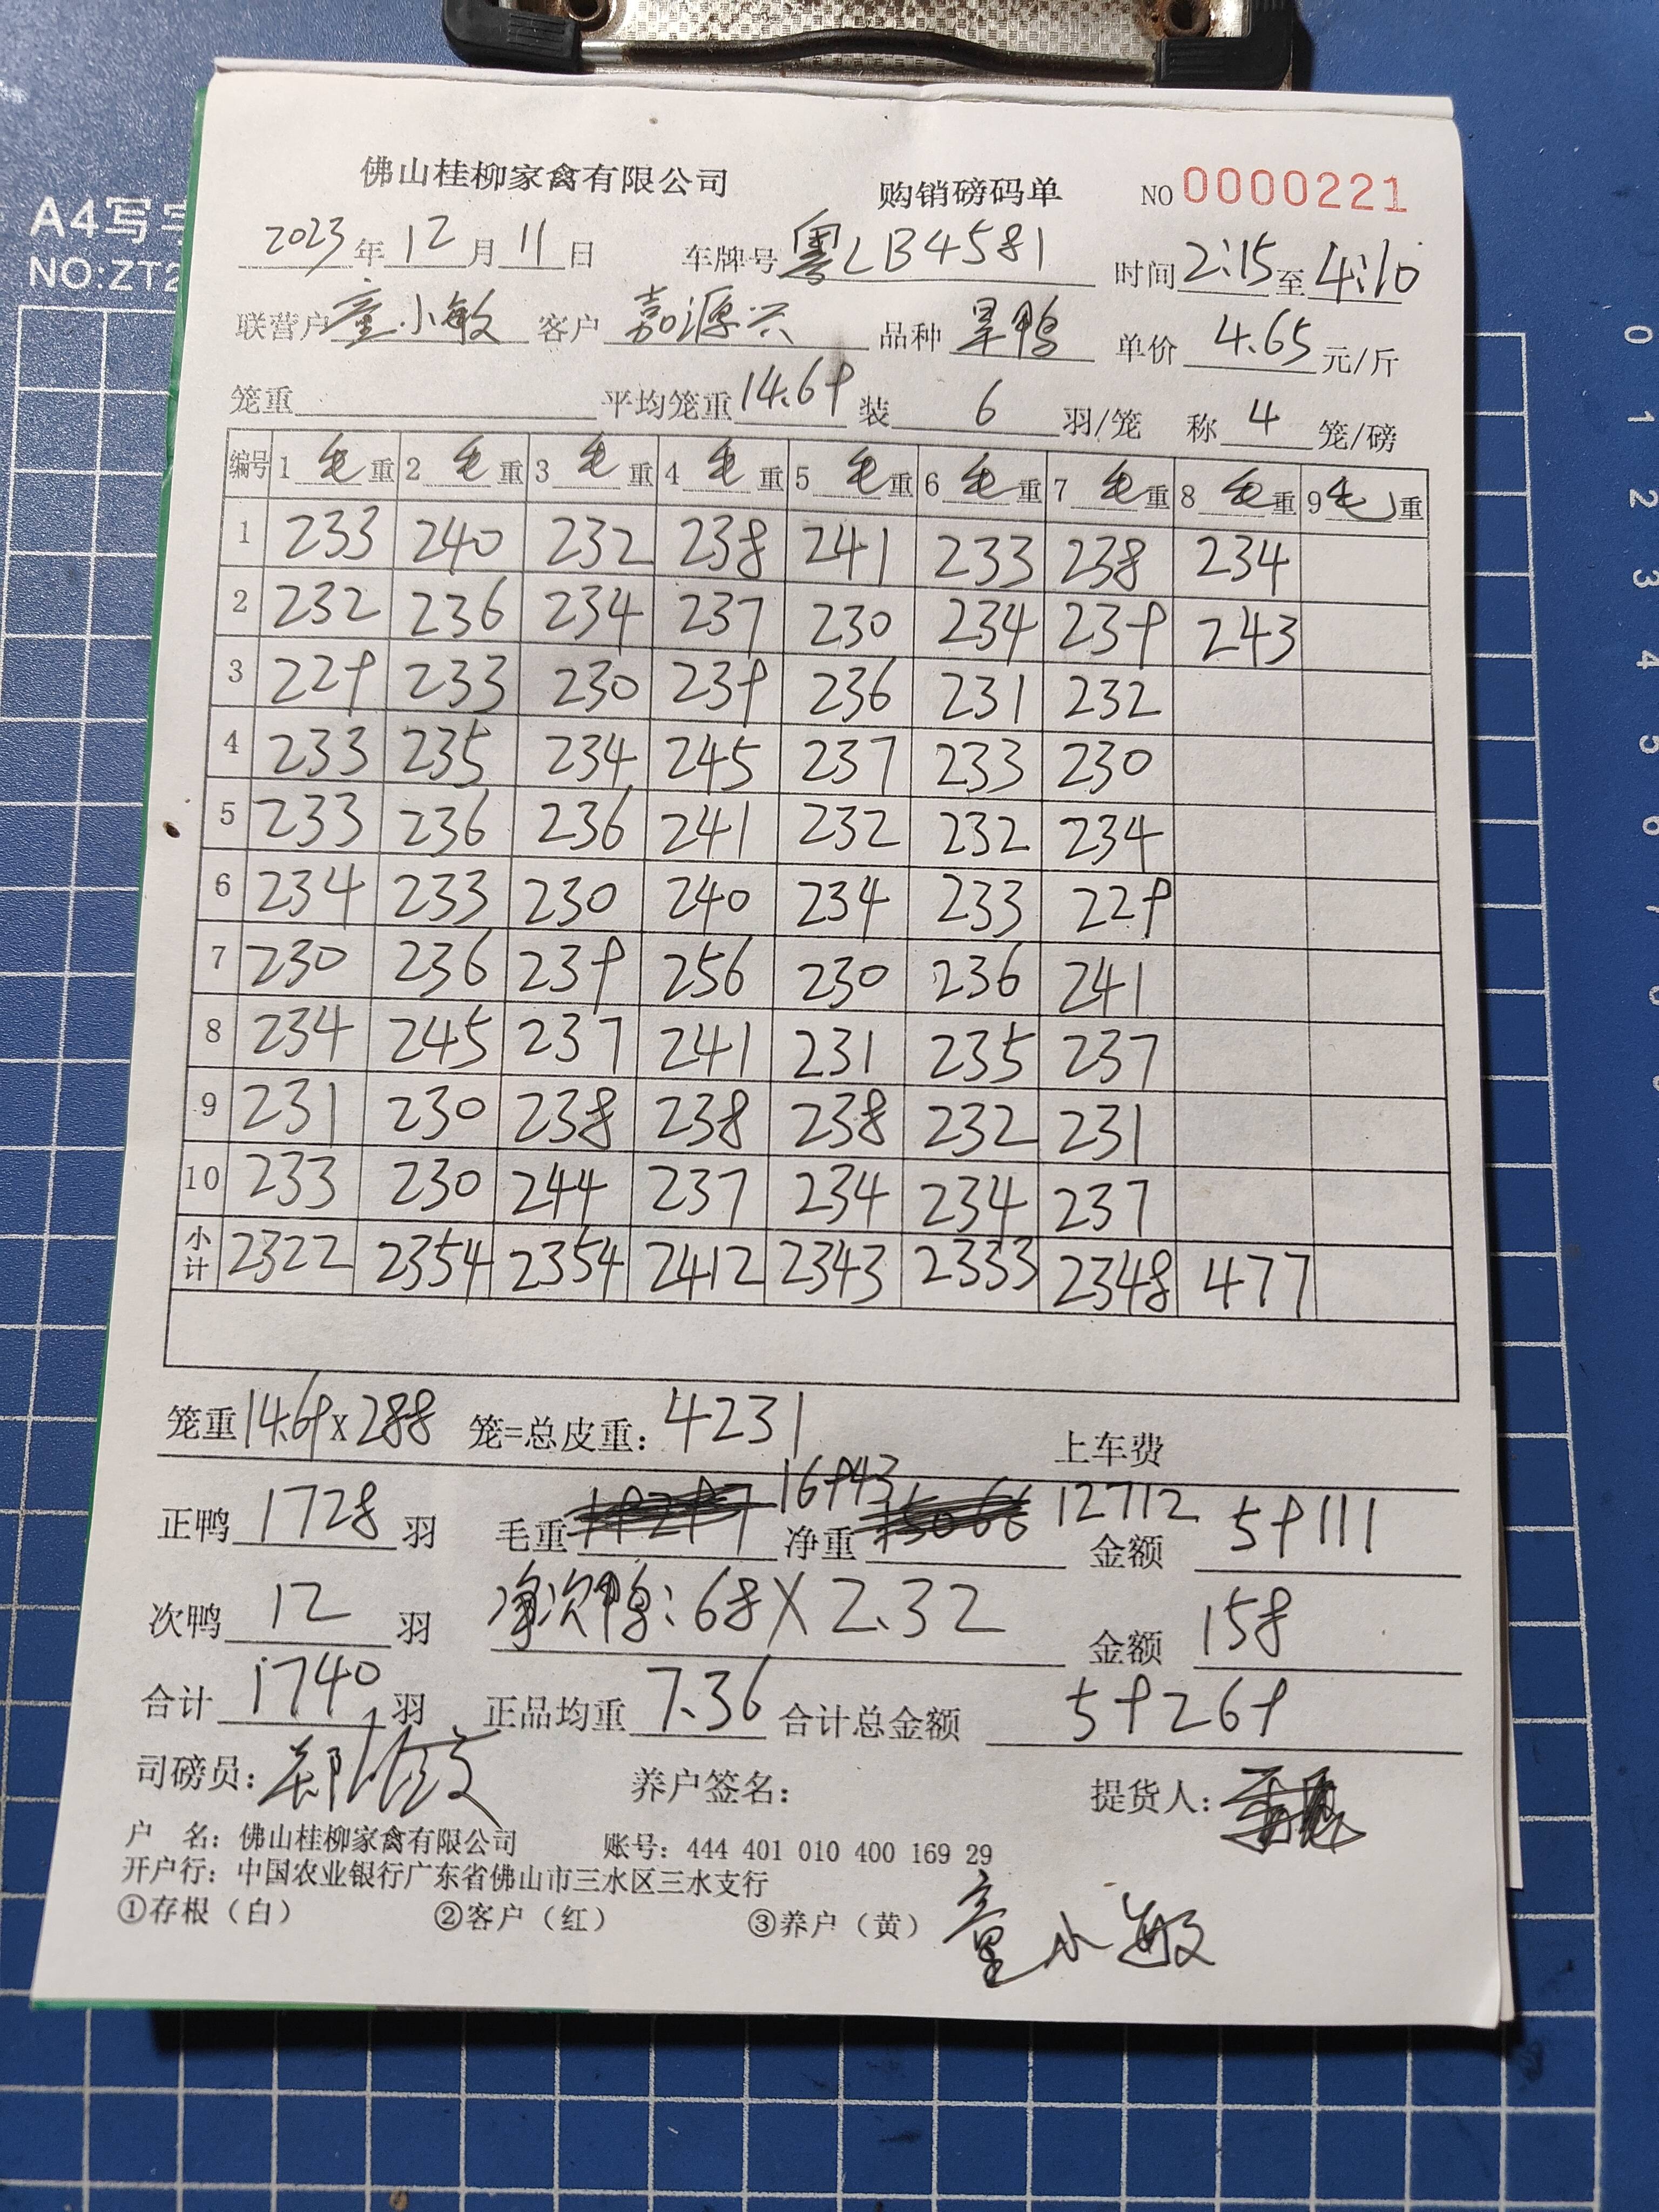 A4写字
NO:ZT2
佛山桂柳家禽有限公司 购销磅码单 NO 0000221
2023年12月11日 车牌号粤LB4581 时间2:15至4:10
联营户童小敏 客户嘉源兴 品种旱鸭 单价4.65元/斤
笼重 平均笼重14.69装6羽/笼 称4笼/磅
编号 1毛重 2毛重 3毛重 4毛重 5毛重 6毛重 7毛重 8毛重 9毛重
1 233 240 232 238 241 233 238 234
2 232 236 234 237 230 234 239 243
3 229 233 230 239 236 231 232
4 233 235 234 245 237 233 230
5 233 236 236 241 232 232 234
6 234 233 230 240 234 233 229
7 230 236 239 256 230 236 241
8 234 245 237 241 231 235 237
9 231 230 238 238 238 232 231
10 233 230 244 237 234 234 237
小计 2322 2354 2354 2412 2343 2333 2348 477
笼重14.69x288 笼=总皮重:4231 上车费
正鸭1728羽 毛重16943 净重12712 金额59111
次鸭12羽 净次鸭:68X2.32 金额158
合计1740羽 正品均重7.36 合计总金额59269
司磅员: 养户签名: 提货人:
户 名:佛山桂柳家禽有限公司 账号:444 401 010 400 169 29
开户行:中国农业银行广东省佛山市三水区三水支行
①存根(白) ②客户(红) ③养户(黄) 童小敏
0
1
2
3
4
5
6
7